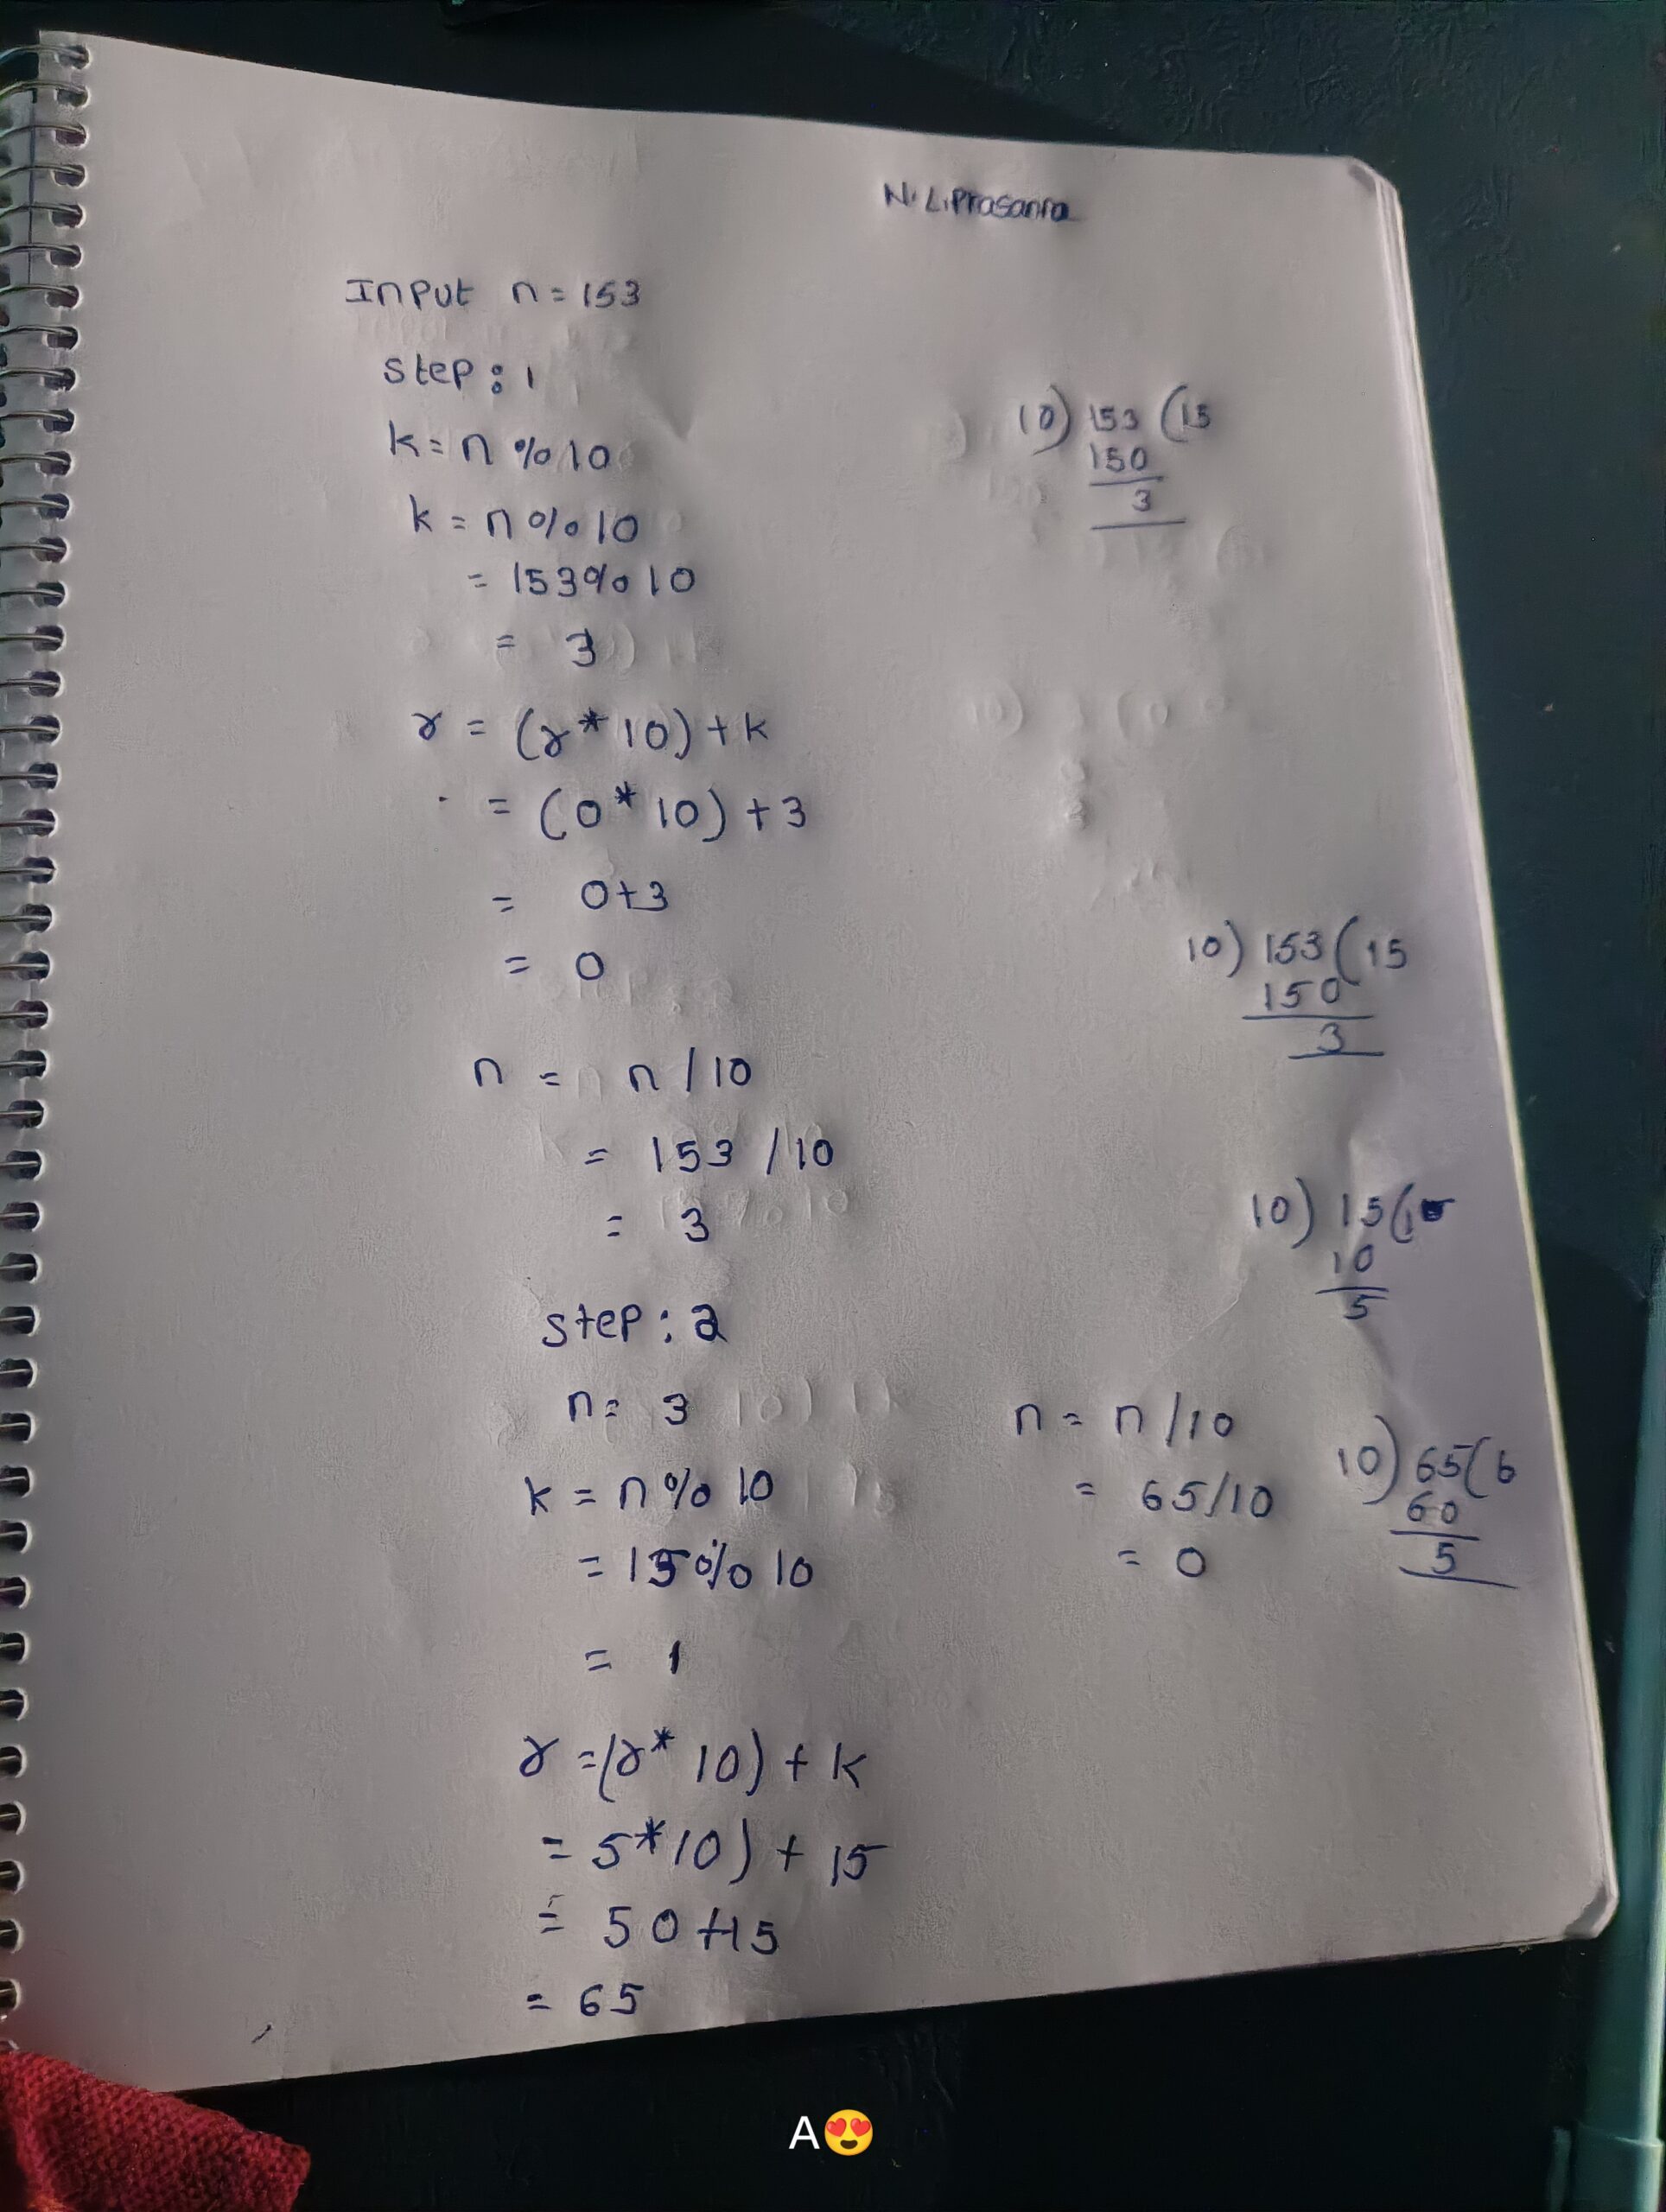 N.L.Prasanna
Input n = 153
step : 1
k = n % 10
k = n % 10
= 153 % 10
= 3
r = (r * 10) + k
= (0 * 10) + 3
= 0+3
= 0
n = n / 10
= 153 / 10
= 3
step : 2
n = 3
k = n % 10
= 15 % 10
= 1
r = (r * 10) + k
= 5 * 10) + 15
= 50 + 15
= 65
10) 153 (15
150
3
10) 153 (15
150
3
10) 15 (1
10
5
n = n / 10
= 65/10
= 0
10) 65 (6
60
5
A😍